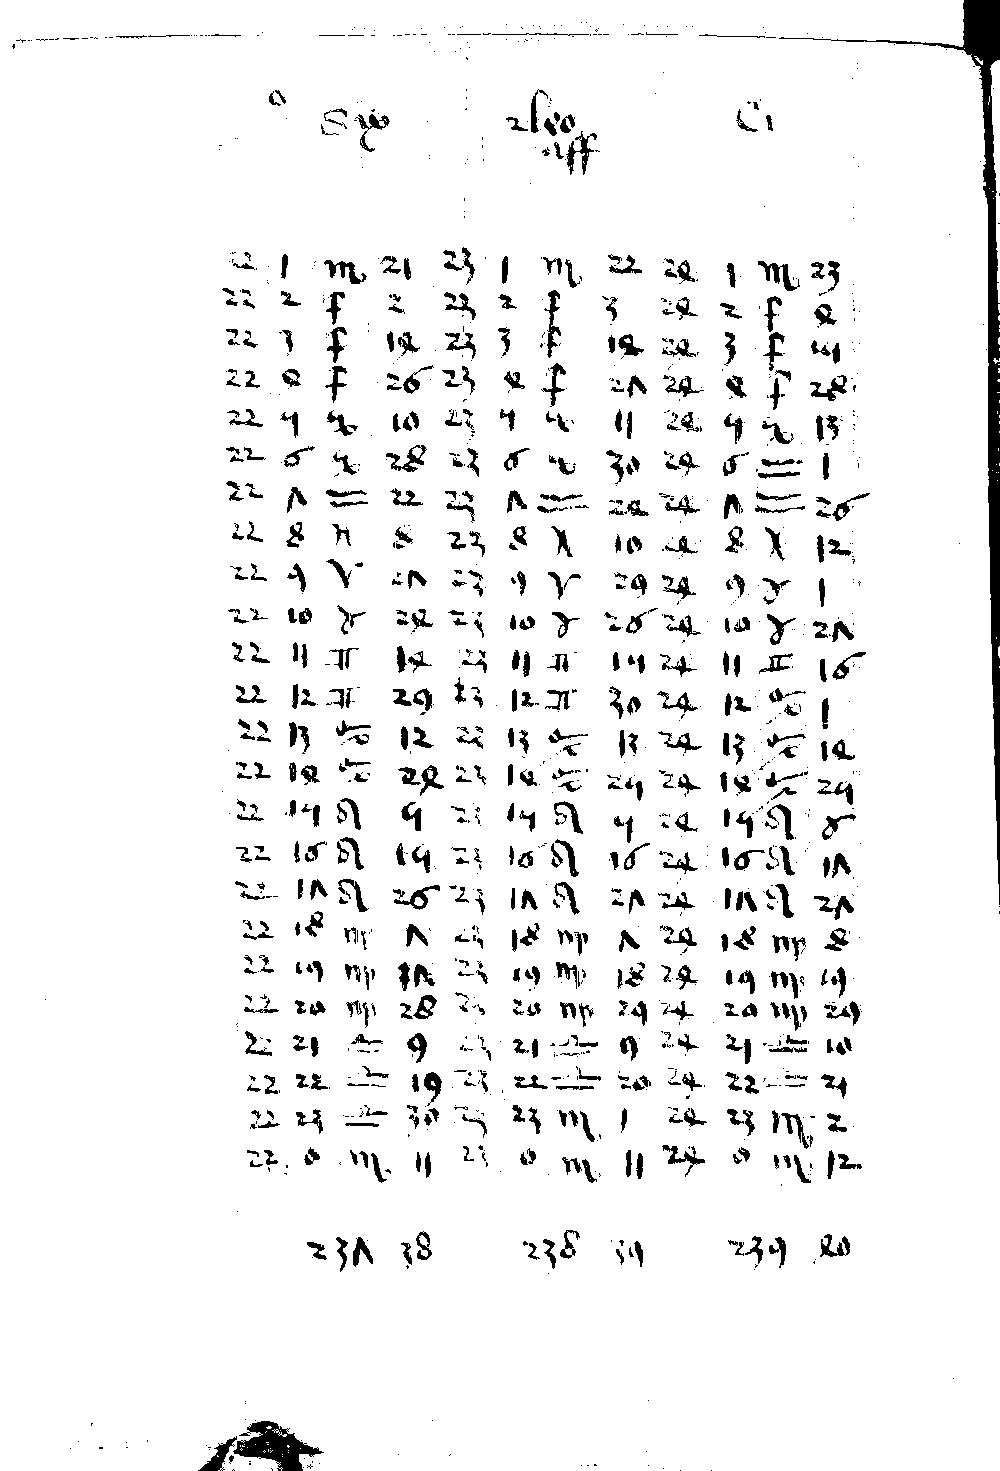 0 Sig Ci
22 1 ♏ 21 23 1 ♏ 22 24 1 ♏ 23
22 2 ♐ 2 23 2 ♐ 3 24 2 ♐ 4
22 3 ♐ 14 23 3 ♐ 14 24 3 ♐ 15
22 4 ♐ 26 23 4 ♐ 27 24 4 ♐ 28
22 5 ♑ 10 23 5 ♑ 11 24 5 ♑ 13
22 6 ♑ 28 23 6 ♑ 30 24 6 ♒ 1
22 7 ♒ 22 23 7 ♒ 24 24 7 ♒ 26
22 8 ♓ 8 23 8 ♓ 10 24 8 ♓ 12
22 9 ♈ 27 23 9 ♈ 29 24 9 ♉ 1
22 10 ♉ 24 23 10 ♉ 26 24 10 ♉ 27
22 11 ♊ 14 23 11 ♊ 15 24 11 ♊ 16
22 12 ♊ 29 23 12 ♊ 30 24 12 ♋ 1
22 13 ♋ 12 23 13 ♋ 13 24 13 ♋ 14
22 14 ♋ 24 23 14 ♋ 25 24 14 ♋ 25
22 15 ♌ 5 23 15 ♌ 5 24 15 ♌ 6
22 16 ♌ 15 23 16 ♌ 16 24 16 ♌ 17
22 17 ♌ 26 23 17 ♌ 27 24 17 ♌ 27
22 18 ♍ 7 23 18 ♍ 7 24 18 ♍ 8
22 19 ♍ 17 23 19 ♍ 18 24 19 ♍ 19
22 20 ♍ 28 23 20 ♍ 29 24 20 ♍ 29
22 21 ♎ 9 23 21 ♎ 9 24 21 ♎ 10
22 22 ♎ 19 23 22 ♎ 20 24 22 ♎ 21
22 23 ♎ 30 23 23 ♏ 1 24 23 ♏ 2
22 0 ♏ 11 23 0 ♏ 11 24 0 ♏ 12
237 38 238 39 239 40